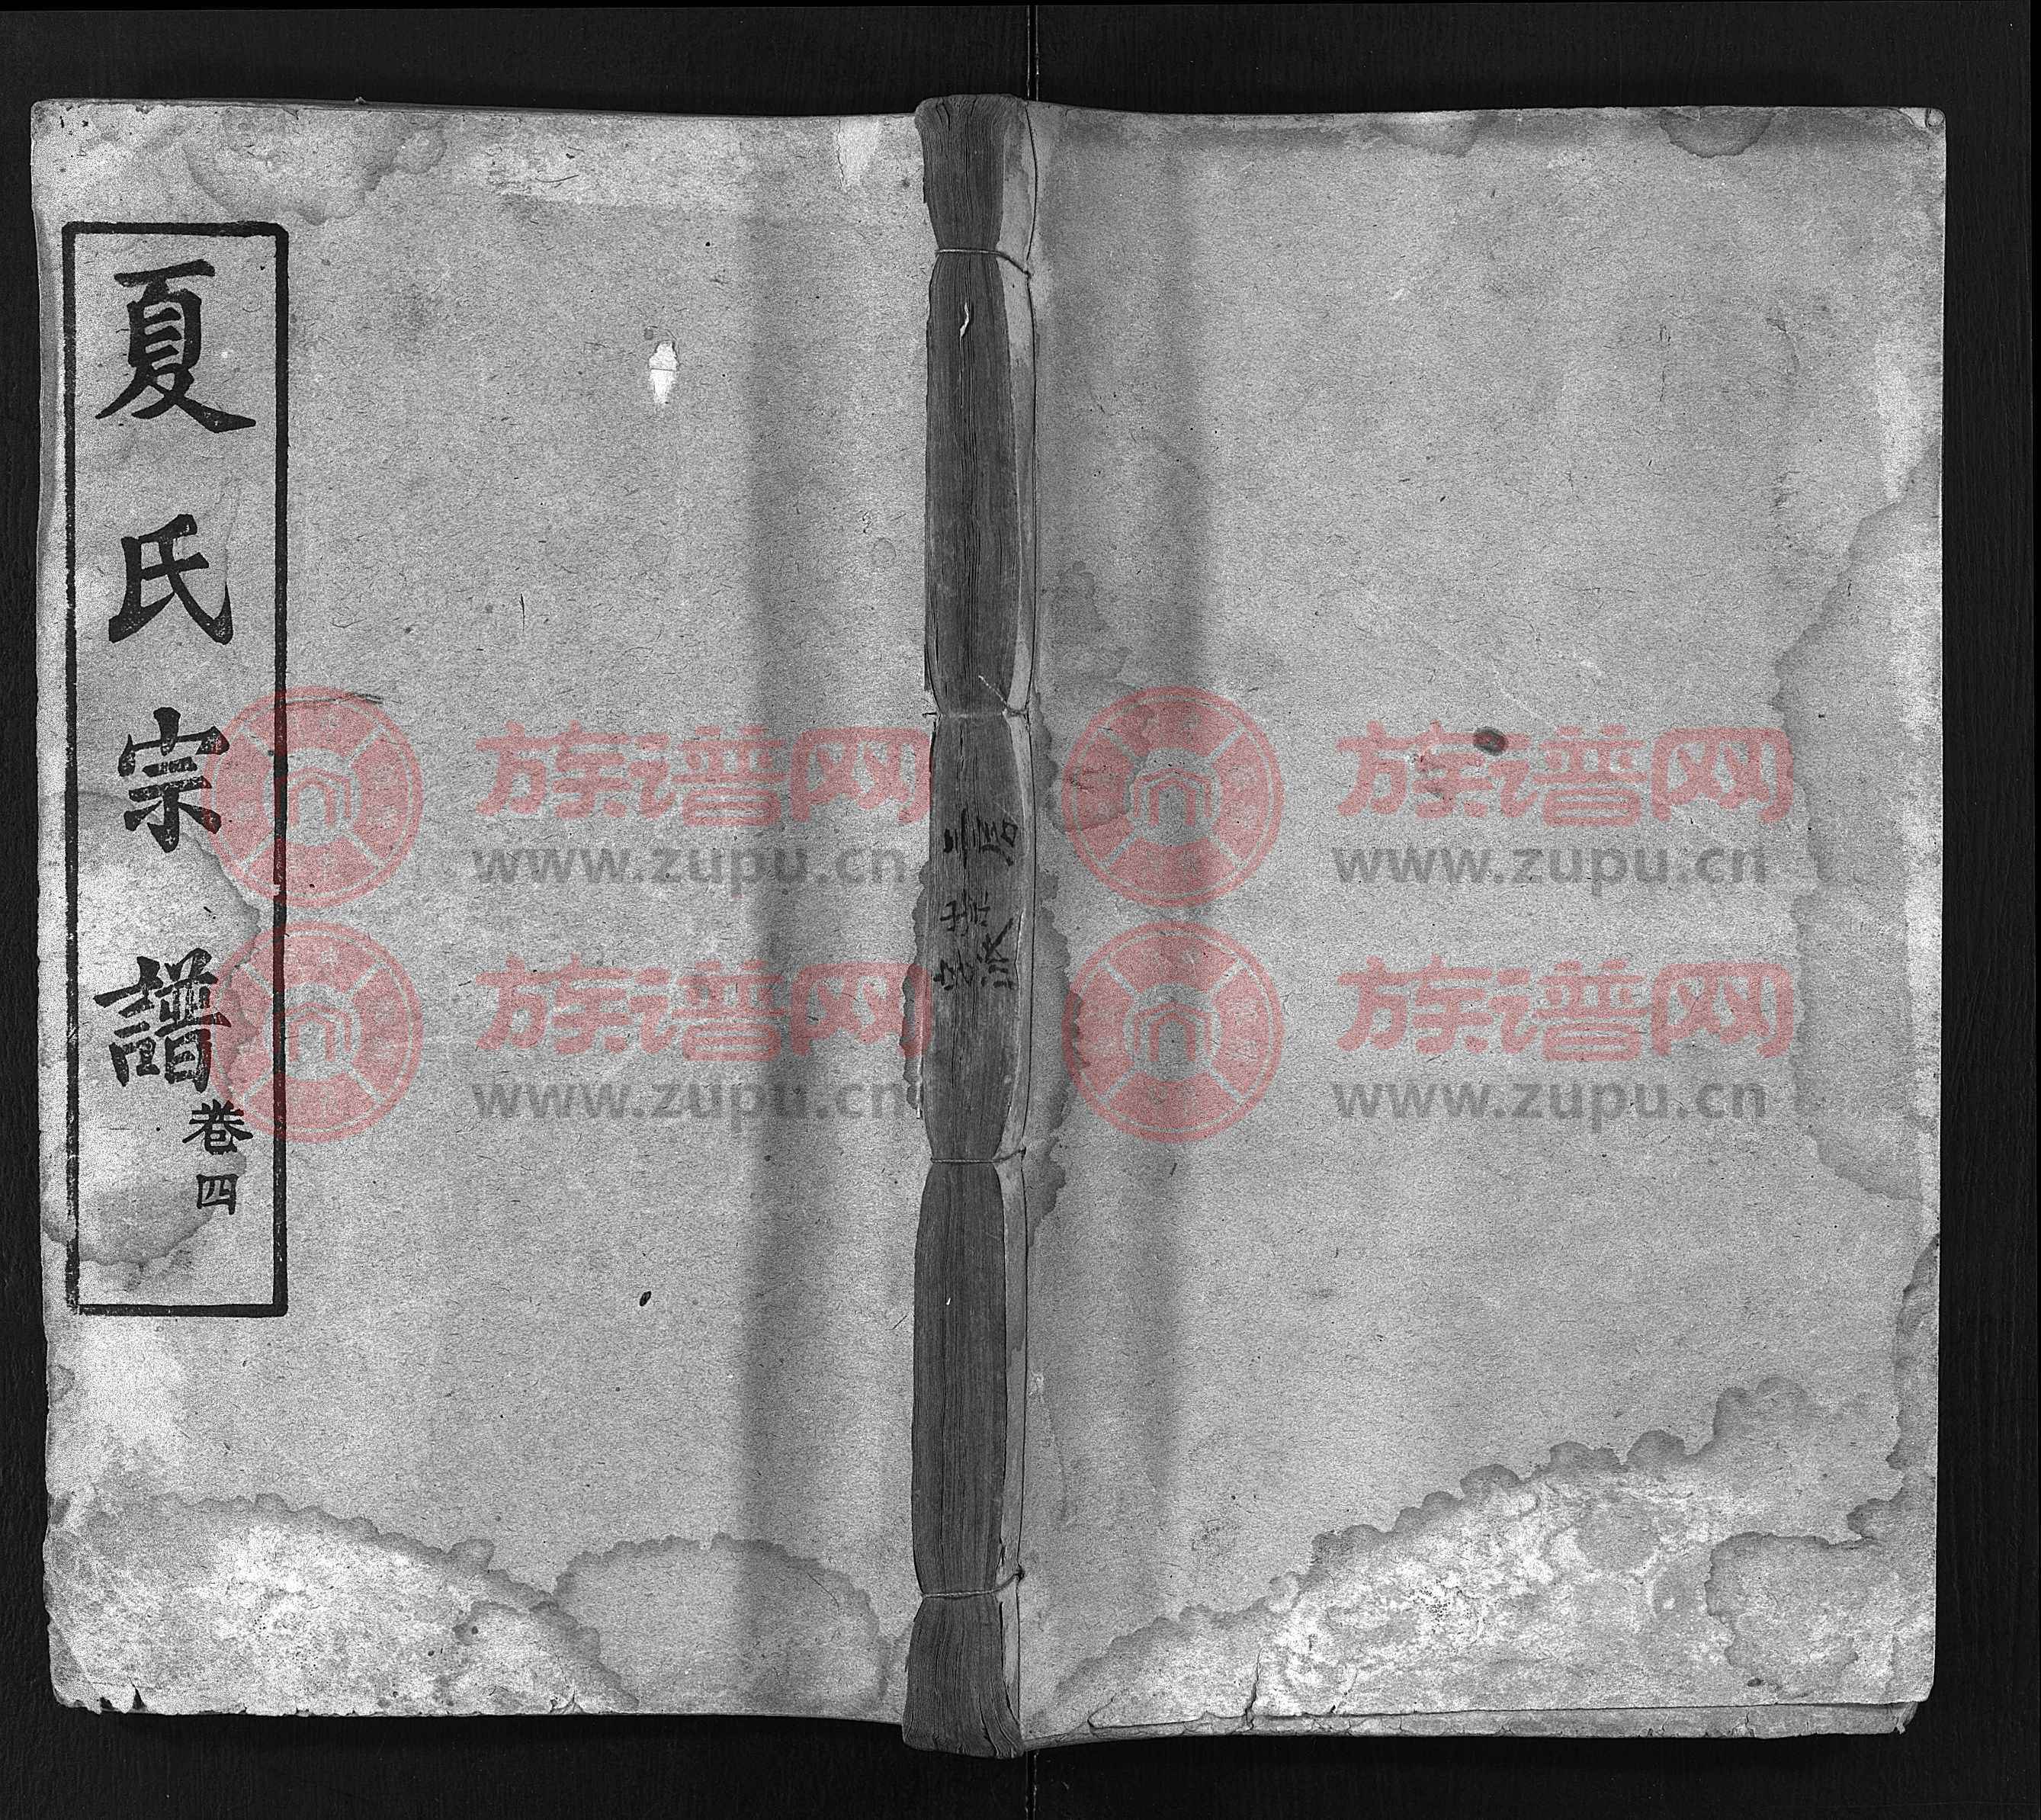 夏氏宗譜
卷四
族谱网
www.zupu.cn
族谱网
www.zupu.cn
族谱网
www.zupu.cn
族谱网
www.zupu.cn